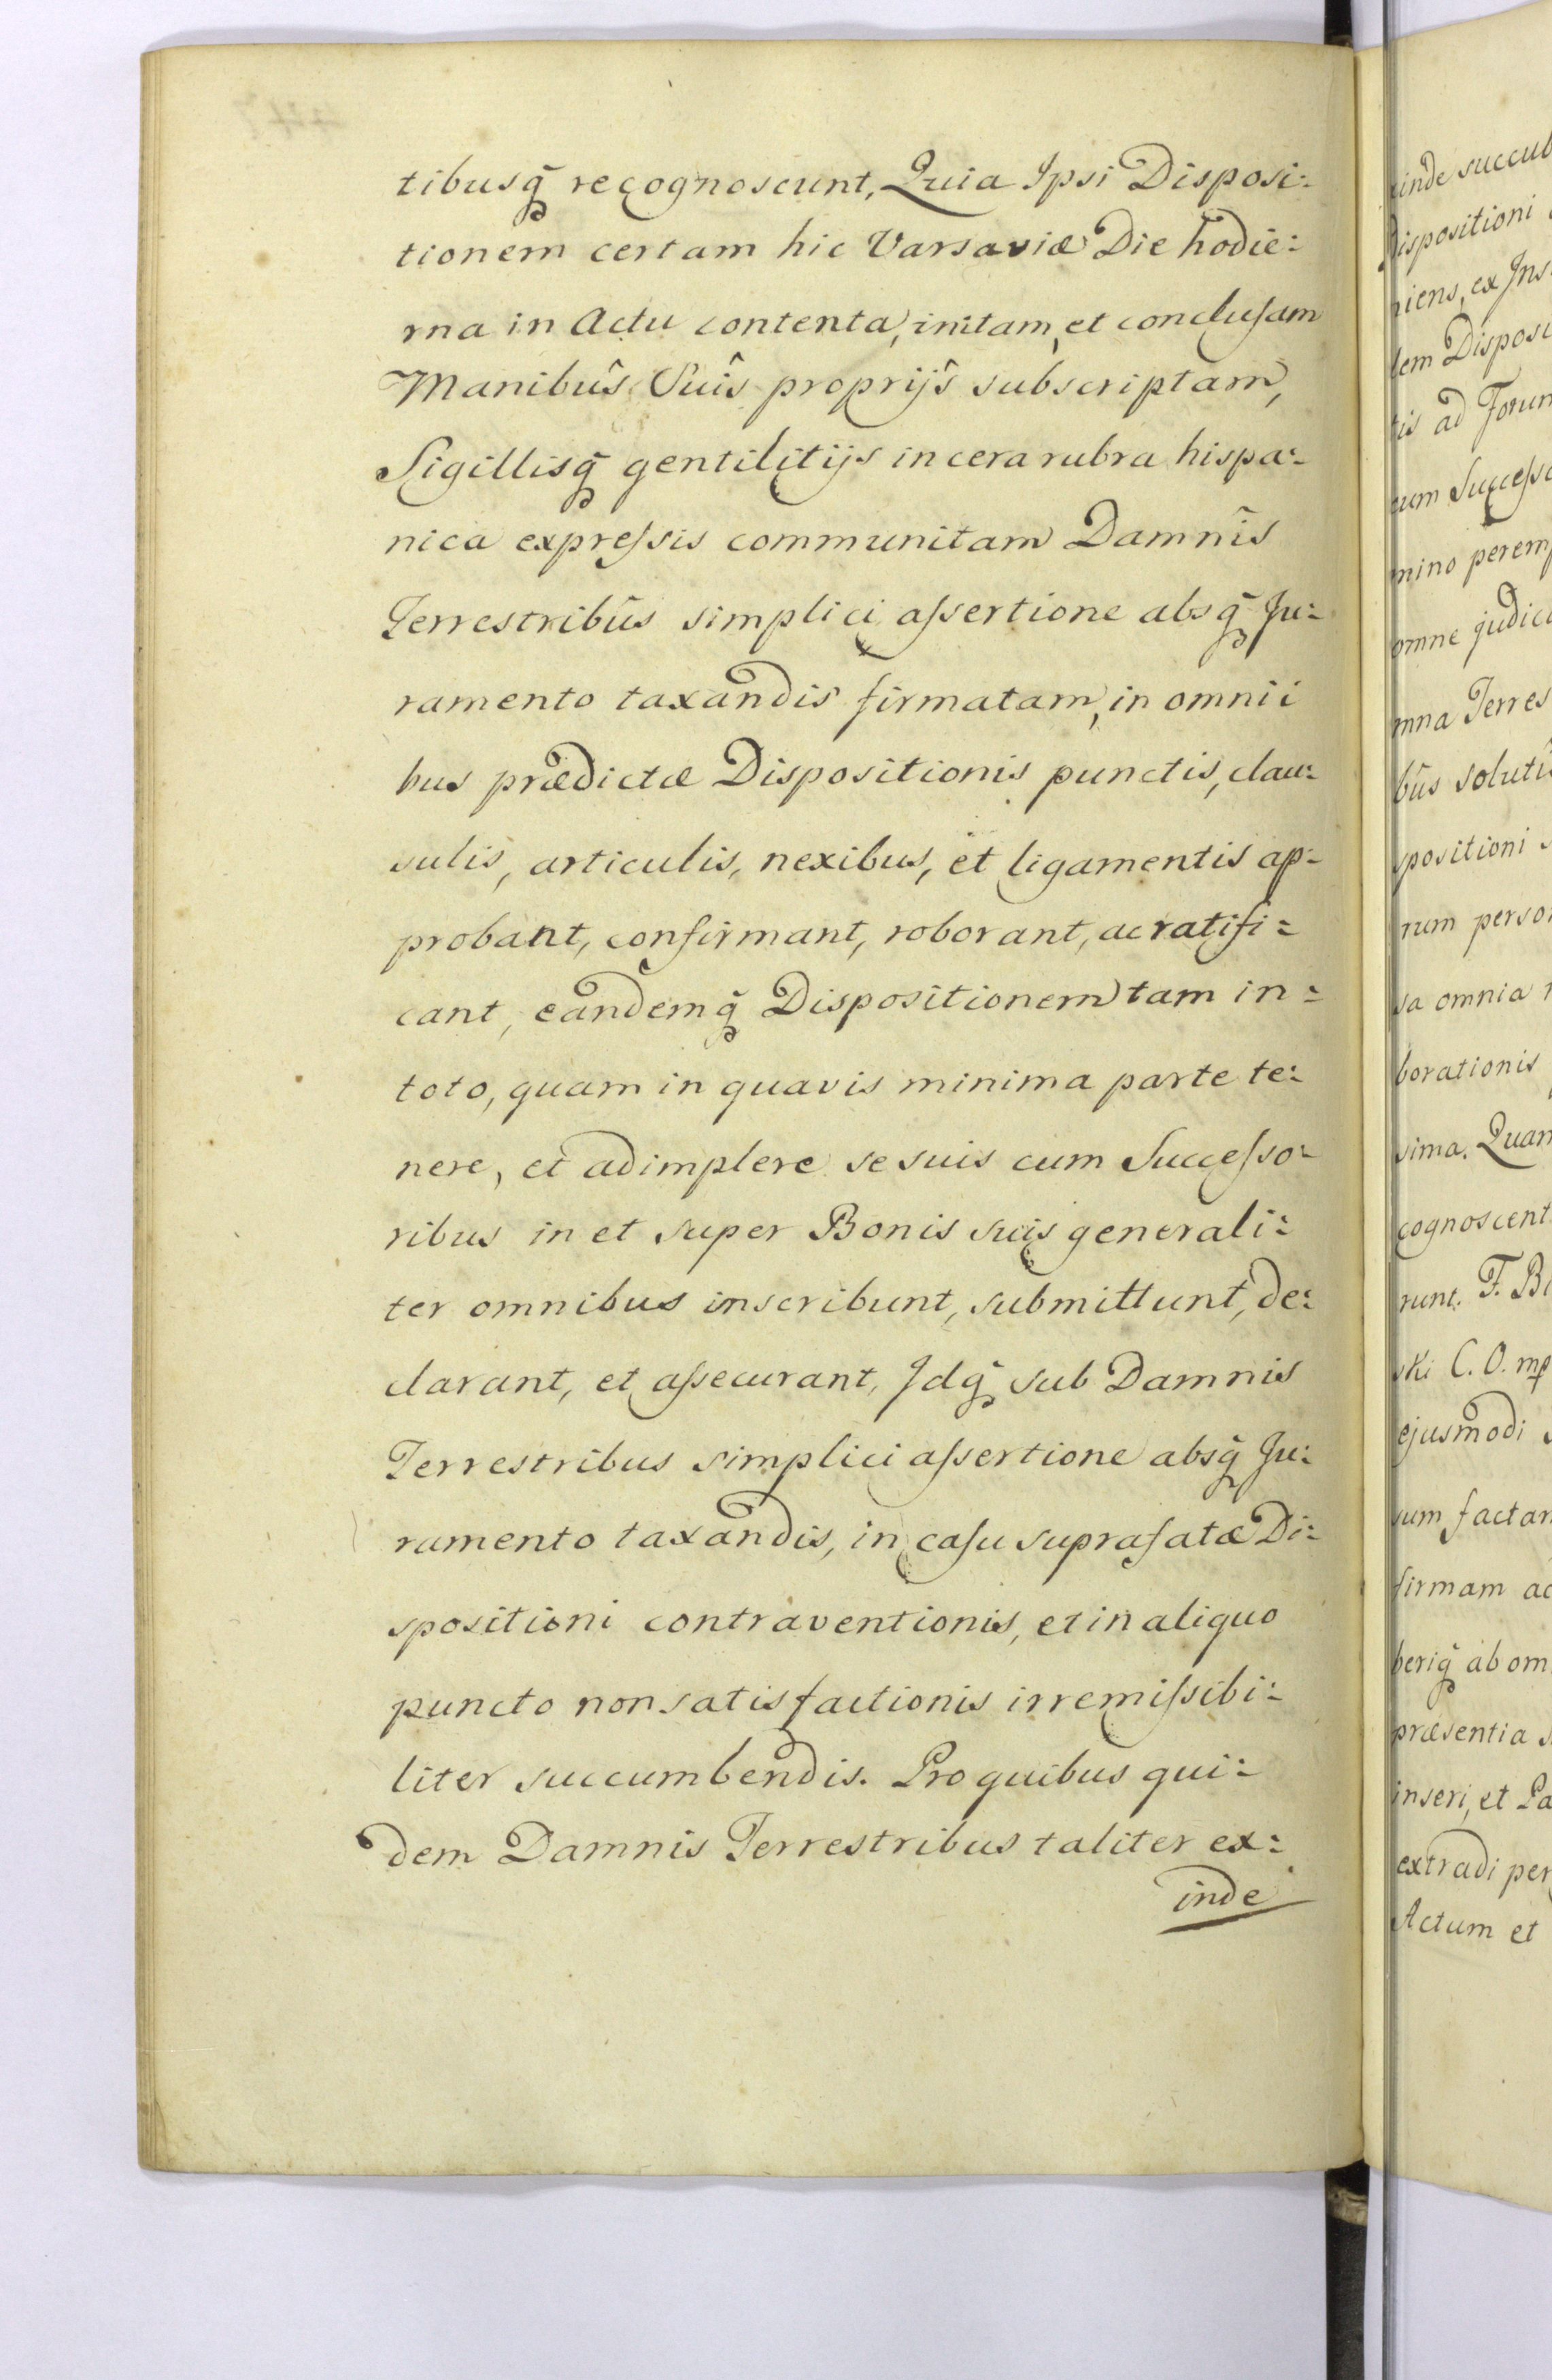 tibusq̃ recognoscunt, Quia Ipsi Disposi:
tionem certam hic Varsaviæ Die hodie:
rna in Actu contenta, initam, et conclusam
Manibus Suis proprijs subscriptam,
Sigillisq̃ gentilitijs in cera rubra hispa:
nica expressis communitam Damnis
Terrestribus simplici assertione absq̃ Ju:
ramento taxandis firmatam, in omnii
bus prædictæ Dispositionis punctis, clau:
sulis, articulis, nexibus, et ligamentis ap:
probant, confirmant, roborant, ac ratifi:
cant, eandemq̃ Dispositionem tam in:
toto, quam in quavis minima parte te:
nere, et adimplere se suis cum Successo:
ribus in et super Bonis suis generali:
ter omnibus inscribunt, submittunt, de:
clarant, et assecurant, Jdq̃ sub Damnis
Terrestribus simplici assertione absq̃ Ju:
ramento taxandis, in casu suprafatæ Di:
spositioni contraventionis, et in aliquo
puncto non satisfactionis irremissibi:
liter succumbendis. Pro quibus qui:
dem Damnis Terrestribus taliter ex:
inde
inde succub
Dispositioni
niens, ex Ins
dem Disposi
tis ad Forum
cum Successo
mino peremp
omne judica
mna Terres
bus solutis
spositioni s
rum person
sa omnia
borationis
sima. Quam
cognoscent
runt. F. Bi
ski C. O. mp
ejusmodi
sum factam
firmam ac
beriq̃ ab om
præsentia s
inseri, et Pa
extradi per
Actum et